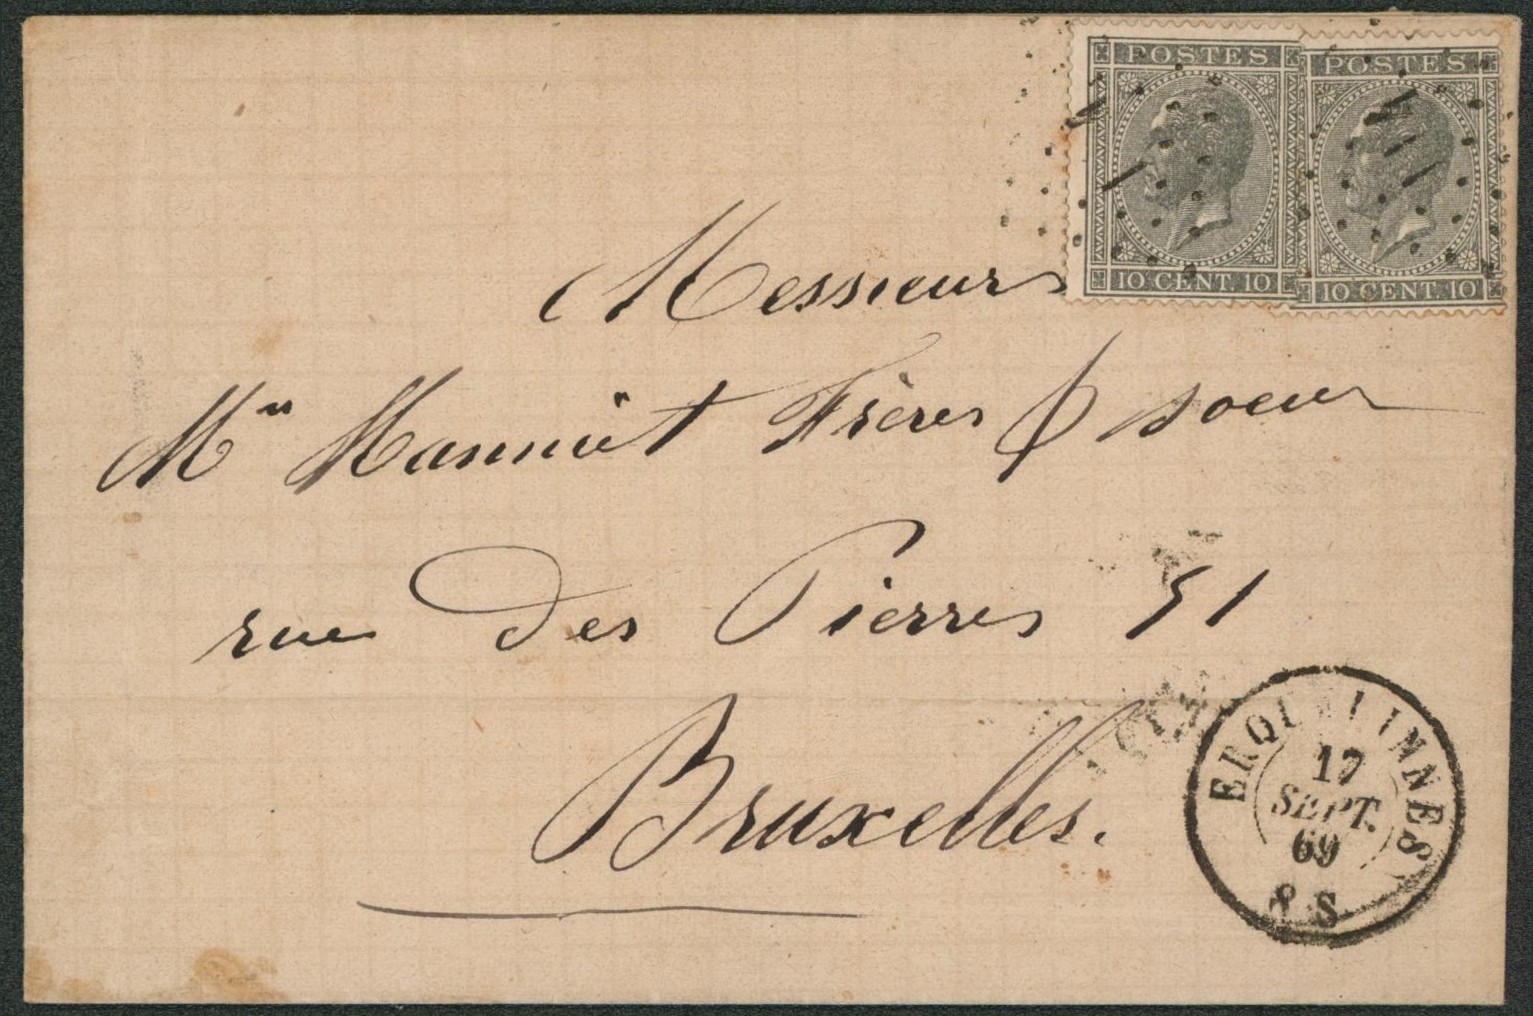 POSTES POSTES
10 CENT. 10 10 CENT. 10
Messieurs
Frères & soeur
rue des Pierres 51
Bruxelles.
ERQUELINNES
17
SEPT.
69
8 S